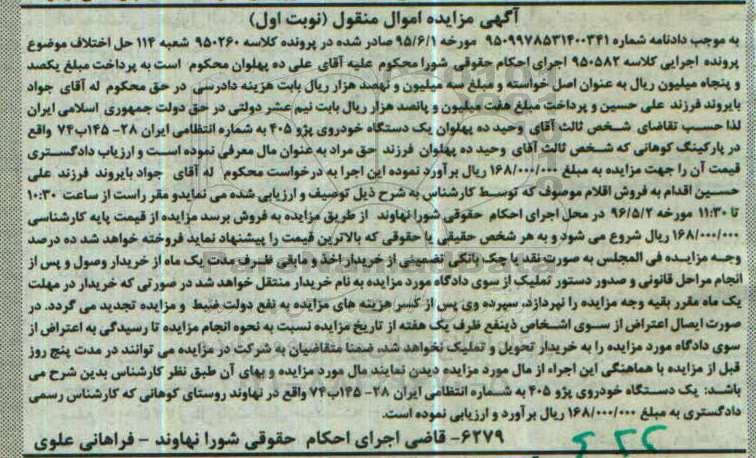 آگهی مزایده اموال منقول (نوبت اول)
به موجب دادنامه شماره ۹۵۰۹۹۷۸۵۳۱۴۰۰۳۴۱ مورخه ۹۵/۶/۱ صادر شده در پرونده کلاسه ۹۵۰۲۶۰ شعبه ۱۱۴ حل اختلاف موضوع
پرونده اجرایی کلاسه ۹۵۰۵۸۲ اجرای احکام حقوقی شورا محکوم علیه آقای علی ده پهلوان محکوم است به پرداخت مبلغ یکصد
و پنجاه میلیون ریال به عنوان اصل خواسته و مبلغ سه میلیون و نهصد هزار ریال بابت هزینه دادرسی در حق محکوم له آقای جواد
بایروند فرزند علی حسین و پرداخت مبلغ هفت میلیون و پانصد هزار ریال بابت نیم عشر دولتی در حق دولت جمهوری اسلامی ایران
لذا حسب تقاضای شخص ثالث آقای وحید ده پهلوان یک دستگاه خودروی پژو ۴۰۵ به شماره انتظامی ایران ۲۸- ۱۴۵ب۷۴ واقع
در پارکینگ کوهانی که شخص ثالث آقای وحید ده پهلوان فرزند حق مراد به عنوان مال معرفی نموده است و ارزیاب دادگستری
قیمت آن را جهت مزایده به مبلغ ۱۶۸/۰۰۰/۰۰۰ ریال برآورد نموده این اجرا به درخواست محکوم له آقای جواد بایروند فرزند علی
حسین اقدام به فروش اقلام موصوف که توسط کارشناس به شرح ذیل توصیف و ارزیابی شده می نمایدو مقر راست از ساعت ۱۰:۳۰
تا ۱۱:۳۰ مورخه ۹۶/۵/۲ در محل اجرای احکام حقوقی شورا نهاوند از طریق مزایده به فروش برسد مزایده از قیمت پایه کارشناسی
۱۶۸/۰۰۰/۰۰۰ ریال شروع می شود و به هر شخص حقیقی یا حقوقی که بالاترین قیمت را پیشنهاد نماید فروخته خواهد شد ده درصد
وجه مزایده فی المجلس به صورت نقد یا چک بانکی تضمینی از خریدار اخذ و مابقی ظرف مدت یک ماه از خریدار وصول و پس از
انجام مراحل قانونی و صدور دستور تملیک از سوی دادگاه مورد مزایده به نام خریدار منتقل خواهد شد در صورتی که خریدار در مهلت
یک ماه مقرر بقیه وجه مزایده را نپردازد، سپرده وی پس از کسر هزینه های مزایده به نفع دولت ضبط و مزایده تجدید می گردد. در
صورت ایصال اعتراض از سوی اشخاص ذینفع ظرف یک هفته از تاریخ مزایده نسبت به نحوه انجام مزایده تا رسیدگی به اعتراض از
سوی دادگاه مورد مزایده را به خریدار تحویل و تملیک نخواهد شد، ضمنا متقاضیان به شرکت در مزایده می توانند در مدت پنج روز
قبل از مزایده با هماهنگی این اجراء از مال مورد مزایده دیدن نمایند مال مورد مزایده و بهای آن طبق نظر کارشناس بدین شرح می
باشد: یک دستگاه خودروی پژو ۴۰۵ به شماره انتظامی ایران ۲۸- ۱۴۵ب۷۴ واقع در نهاوند روستای کوهانی که کارشناس رسمی
دادگستری به مبلغ ۱۶۸/۰۰۰/۰۰۰ ریال برآورد و ارزیابی نموده است.
۶۲۷۹- قاضی اجرای احکام حقوقی شورا نهاوند - فراهانی علوی